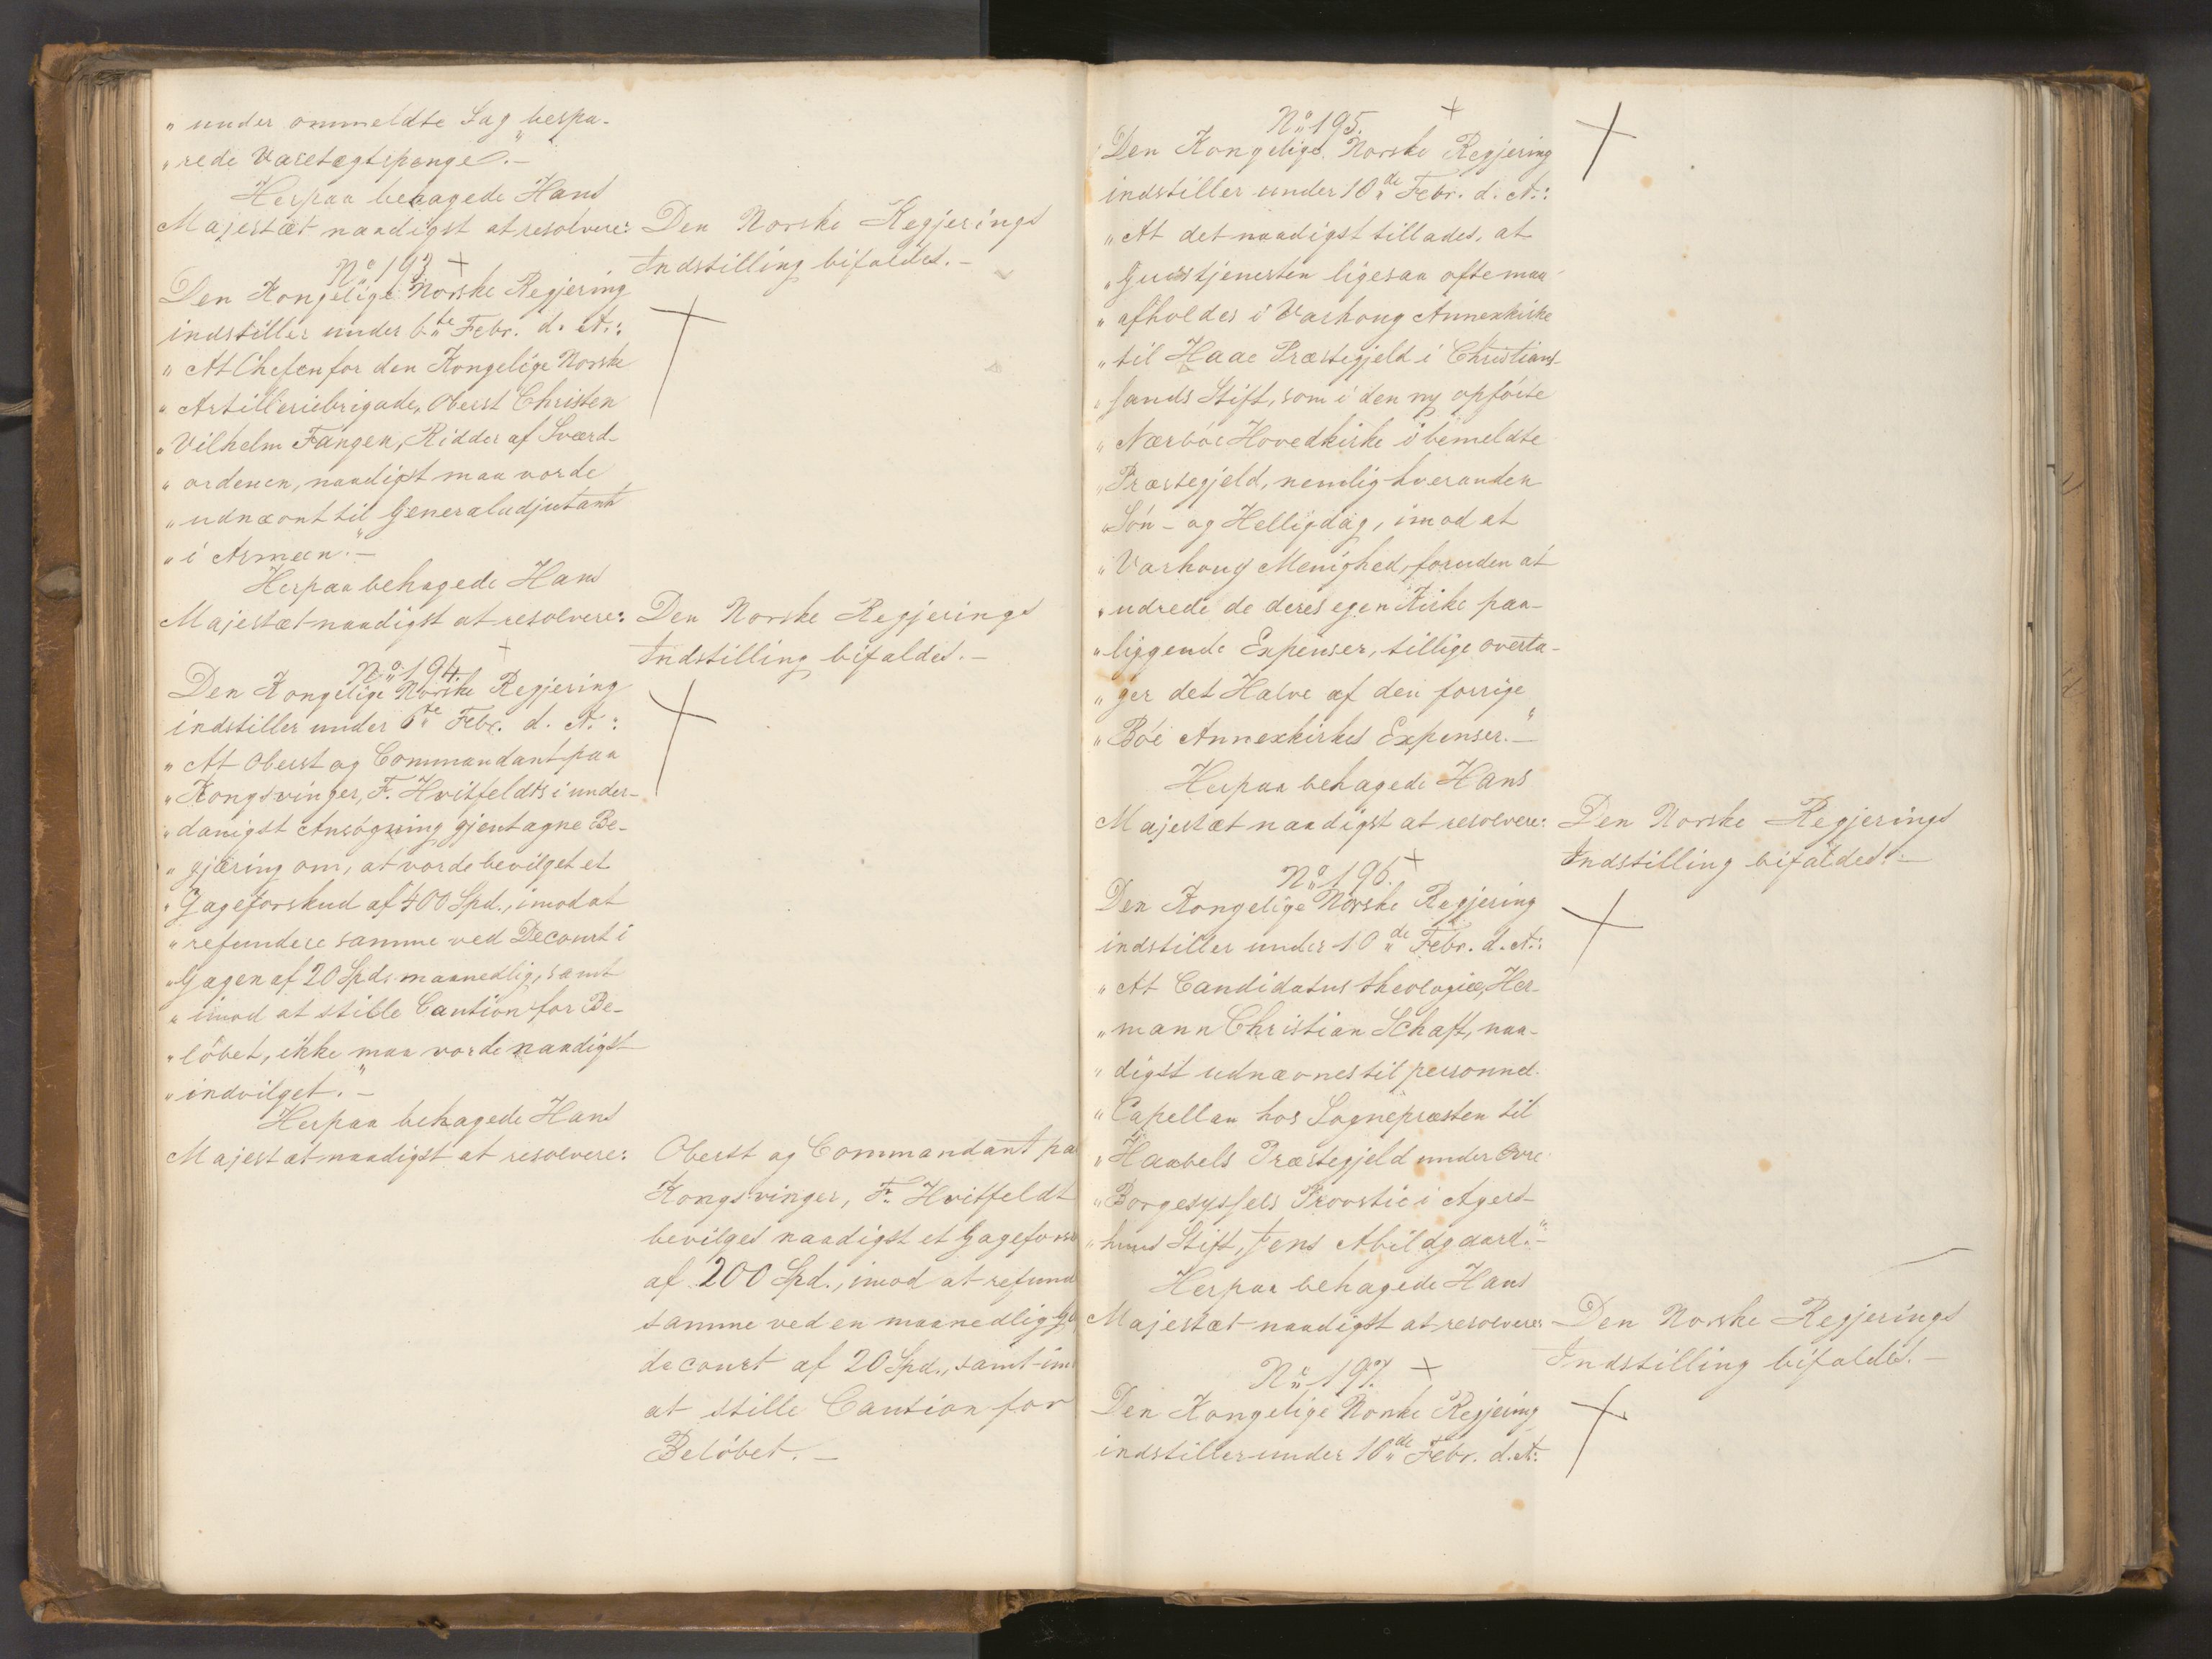 „ under ommeldte Sag bespa-
„ rede Varetægtspenge."-
Herpaa behagede Hans
Majestæt naadigst at resolvere:
Den Norske Regjerings
Indstilling bifaldes.-
No 193.
Den Kongelige Norske Regjering
indstiller under 6te Febr. d. A.:
„ At Chefen for den Kongelige Norske
„ Artilleriebrigade, Oberst Christen
„ Vilhelm Fangen, Ridder af Sværd-
„ ordenen, naadigst maa vorde
„ udnævnt til Generaladjutant
„ i Armeen."-
Herpaa behagede Hans
Majestæt naadigst at resolvere:
Den Norske Regjerings
Indstilling bifaldes.-
No 194.
Den Kongelige Norske Regjering
indstiller under 6te Febr. d. A.:
„ At Oberst og Commandant paa
„ Kongsvinger, F. Hvitfeldts i under-
„ danigst Ansögning gjentagne Be-
„ gjæring om, at vorde bevilget et
„ Gageforskud af 400 Spd., imod at
„ refundere samme ved Decourt i
„ Gagen af 20 Spd. maanedlig, samt
„ imod at stille Caution for Be-
„ löbet, ikke maa vorde naadigst
„ indvilget."-
Herpaa behagede Hans
Majestæt naadigst at resolvere:
Oberst og Commandant pa
Kongsvinger, Fr. Hvitfeldt
bevilges naadigst et Gagefors
af 200 Spd., imod at refund
samme ved en maanedlig Ga
decourt af 20 Spd., samt im
at stille Caution for
Belöbet.-
No 195.
Den Kongelige Norske Regjering
indstiller under 10de Febr. d. A.:
„ At det naadigst tillades, at
„ Gudstjenesten ligesaa ofte maa
„ afholdes i Varhoug Annexkirke
„ til Haae Præstegjeld i Christian-
„ sands Stift, som i den ny opförte
„ Nærböe Hovedkirke i bemeldte
„ Præstegjeld, nemlig hveranden
„ Sön- og Helligdag, imod at
„ Varhoug Menighed, foruden at
„ udrede de deres egen Kirke paa-
„ liggende Expenser, tillige overta-
„ ger det Halve af den forrige
„ Böe Annexkirkes Expenser."-
Herpaa behagede Hans
Majestæt naadigst at resolvere:
Den Norske Regjerings
Indstilling bifaldes.-
No 196.
Den Kongelige Norske Regjering
indstiller under 10de Febr. d. A.:
„ At Candidatus theologiæ, Her-
„ mann Christian Schaft, naa-
„ digst udnævnes til personnel
„ Capellan hos Sognepræsten til
„ Haabels Præstegjeld under Övre
„ Borgesyssels Provstie i Agers-
„ huus Stift, Jens Abildgaard."-
Herpaa behagede Hans
Majestæt naadigst at resolvere:
Den Norske Regjerings
Indstilling bifaldes.-
No 197.
Den Kongelige Norske Regjering
indstiller under 10de Febr. d. A.: